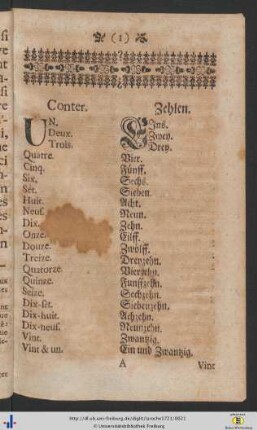 (1)
Conter. Zehlen.
UN. Eins.
Deux. Zwey.
Trois. Drey.
Quatre. Vier.
Cinq. Fünff.
Six. Sechs.
Sét. Sieben.
Huit. Acht.
Neuf. Neun.
Dix. Zehn.
Onze. Eilff.
Douze. Zwölff.
Treize. Dreyzehn.
Quatorze. Vierzehn.
Quinze. Funffzehn.
Seize. Sechzehn.
Dix-sét. Siebenzehn.
Dix-huit. Achzehn.
Dix-neuf. Neunzehn.
Vint. Zwantzig.
Vint & un. Ein und Zwantzig.
A Vint
http://dl.ub.uni-freiburg.de/diglit/larochr1721/0021
© Universitätsbibliothek Freiburg